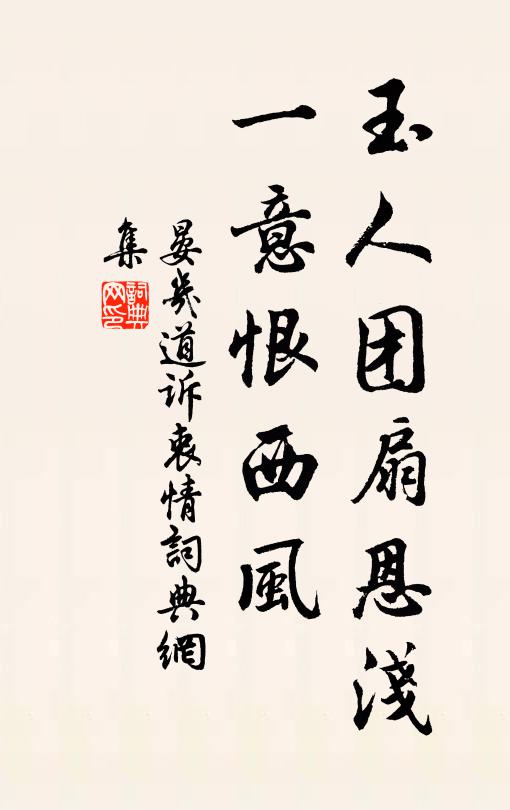 玉人团扇恩淺
一意恨西風
晏幾道訴衷情詞典網
集
詞典网印